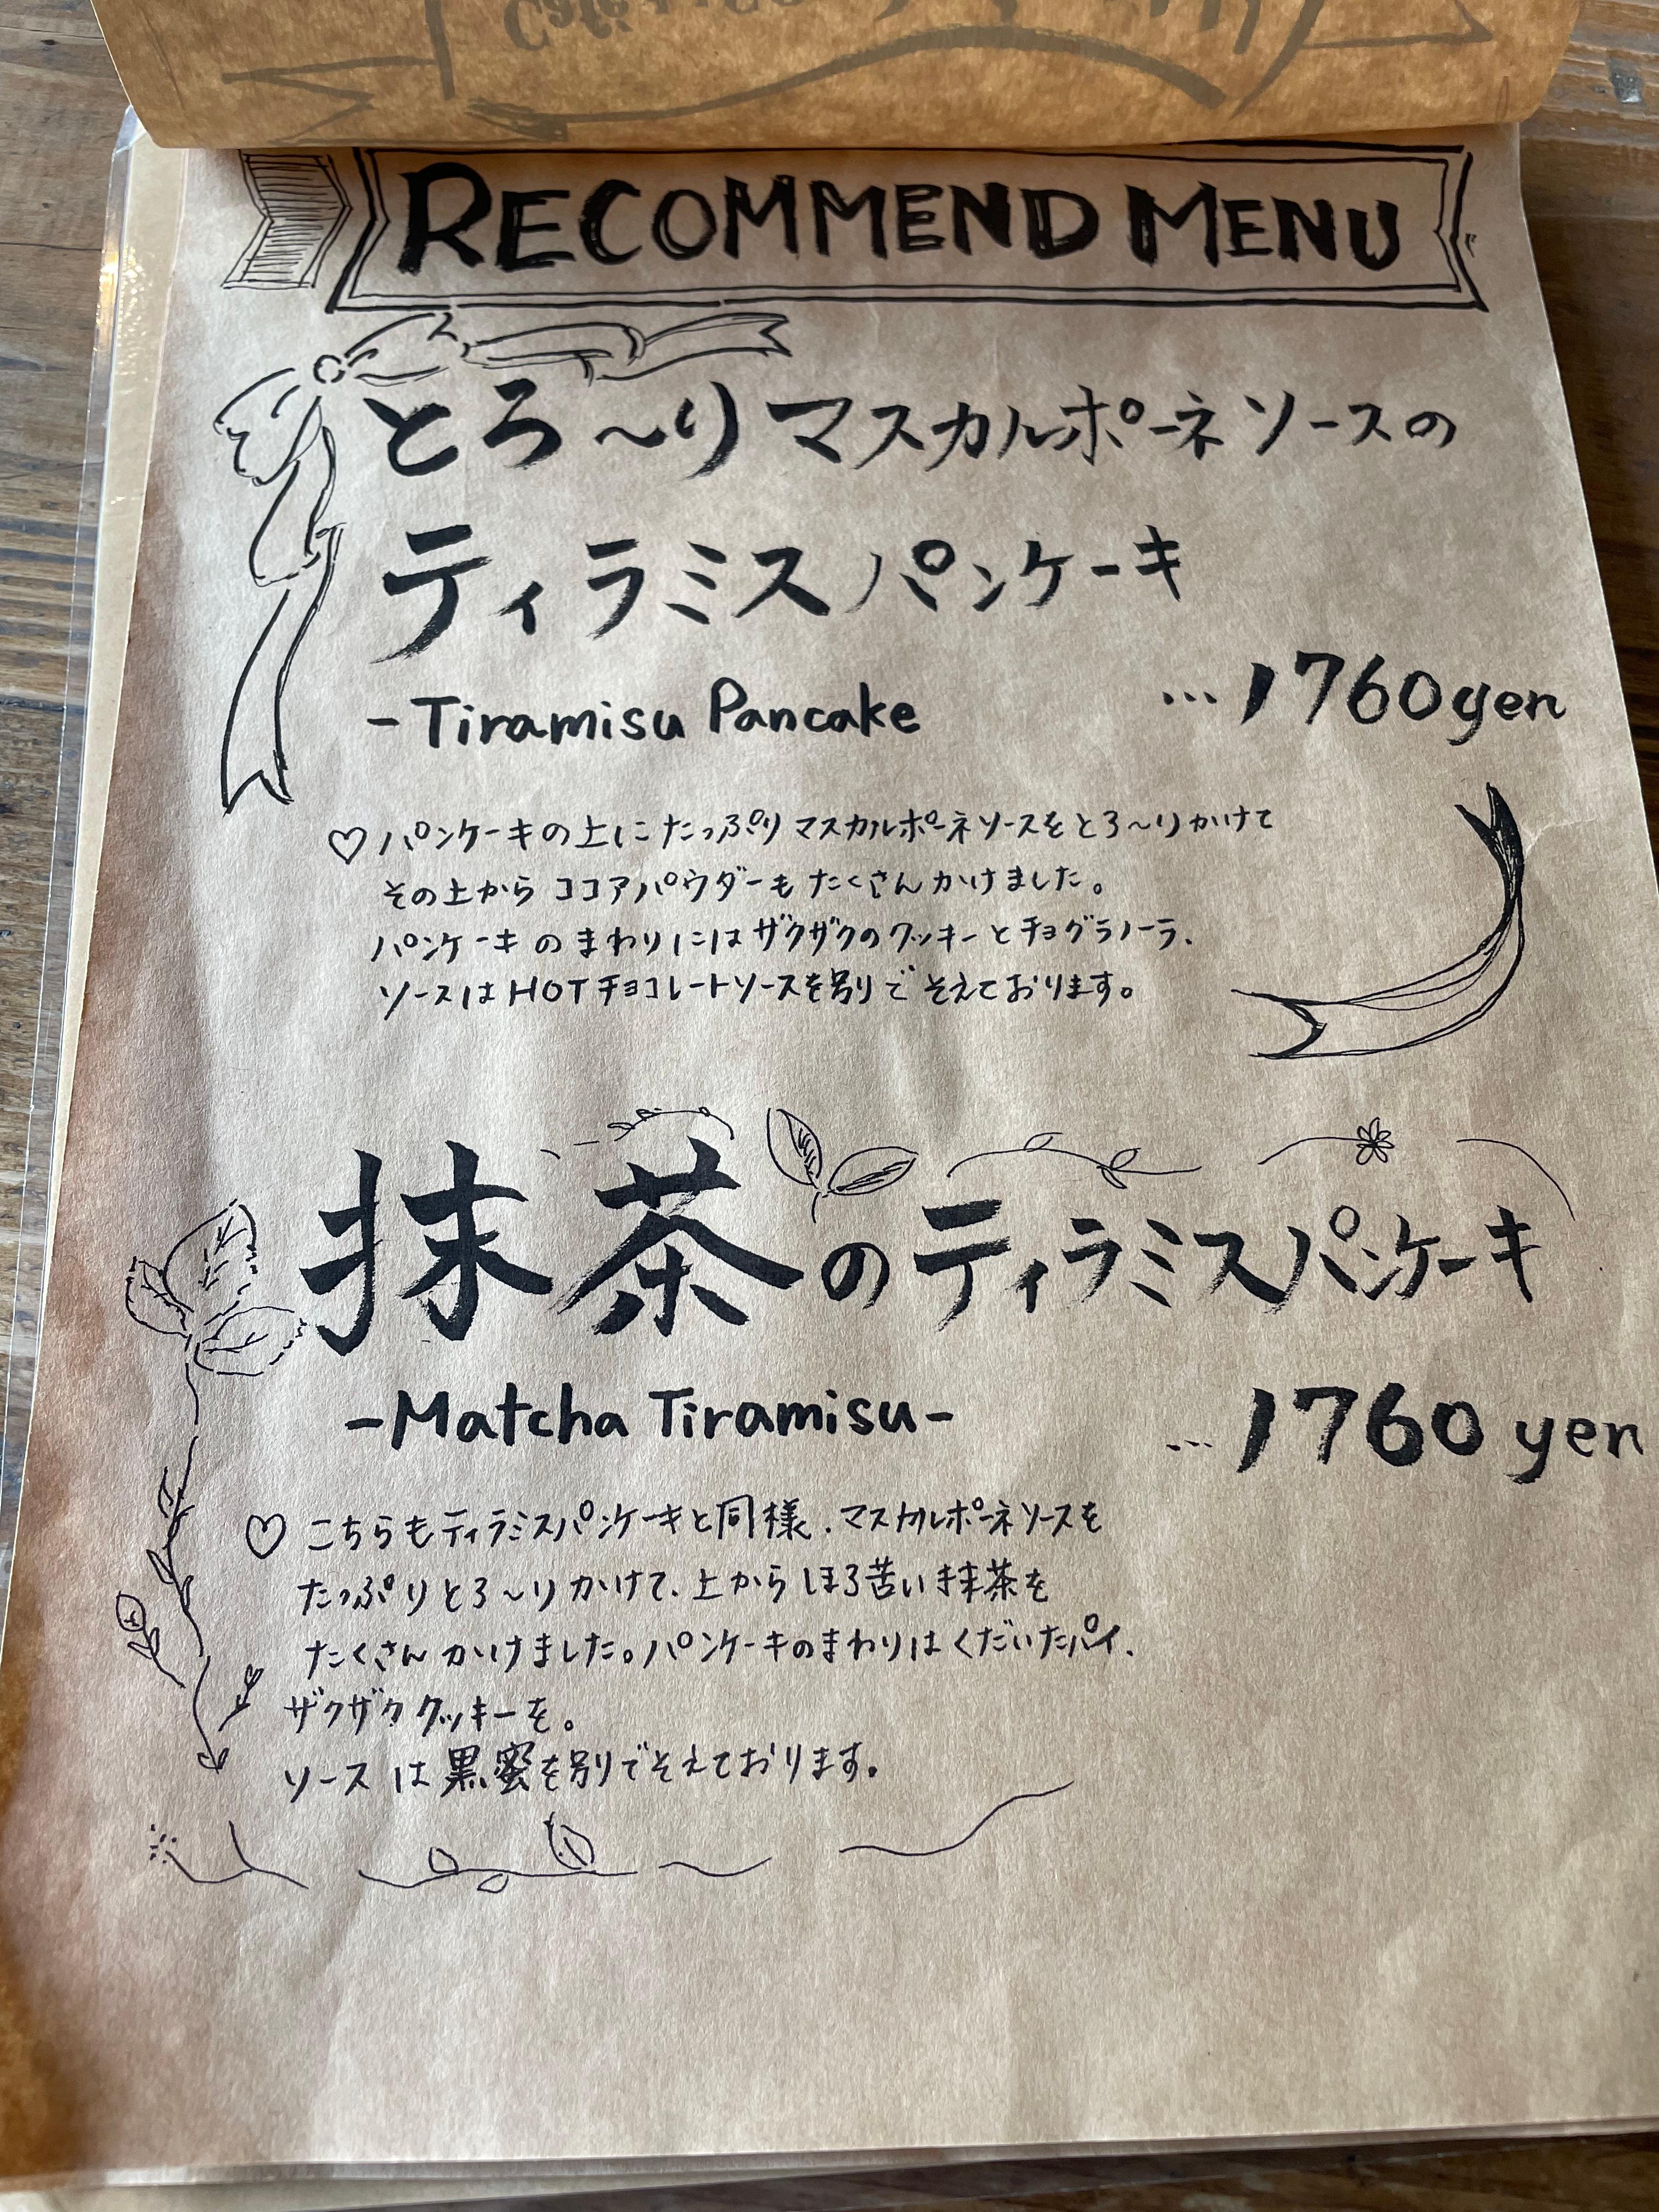 RECOMMEND MENU
とろ〜りマスカルポーネソースの
ティラミスパンケーキ
-Tiramisu Pancake
…1760yen
♡パンケーキの上にたっぷりマスカルポーネソースをとろ〜りかけて
その上からココアパウダーもたくさんかけました。
パンケーキのまわりにはザクザクのクッキーとチョグラノーラ、
ソースはHOTチョコレートソースを別でそえております。
抹茶のティラミスパンケーキ
-Matcha Tiramisu-
…1760 yen
♡こちらもティラミスパンケーキと同様、マスカルポーネソースを
たっぷりとろ〜りかけて、上からほろ苦い抹茶を
たくさんかけました。パンケーキのまわりはくだいたパイ、
ザクザククッキーを。
ソースは黒蜜を別でそえております。